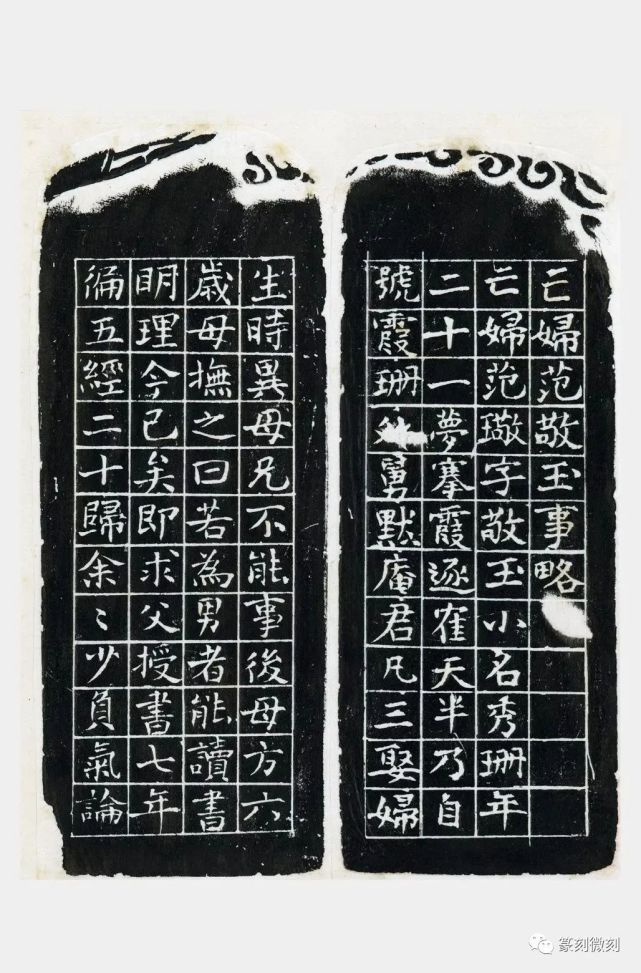 亡婦范敬玉事略
亡婦范璥字敬玉小名秀珊年
二十一夢搴霞逐隺天半乃自
號霞珊外舅默庵君凡三娶婦
生時異母兄不能事後母方六
歲母撫之曰若為男者能讀書
眀理今已矣即求父授書七年
徧五經二十歸余〻少負氣論
篆刻微刻